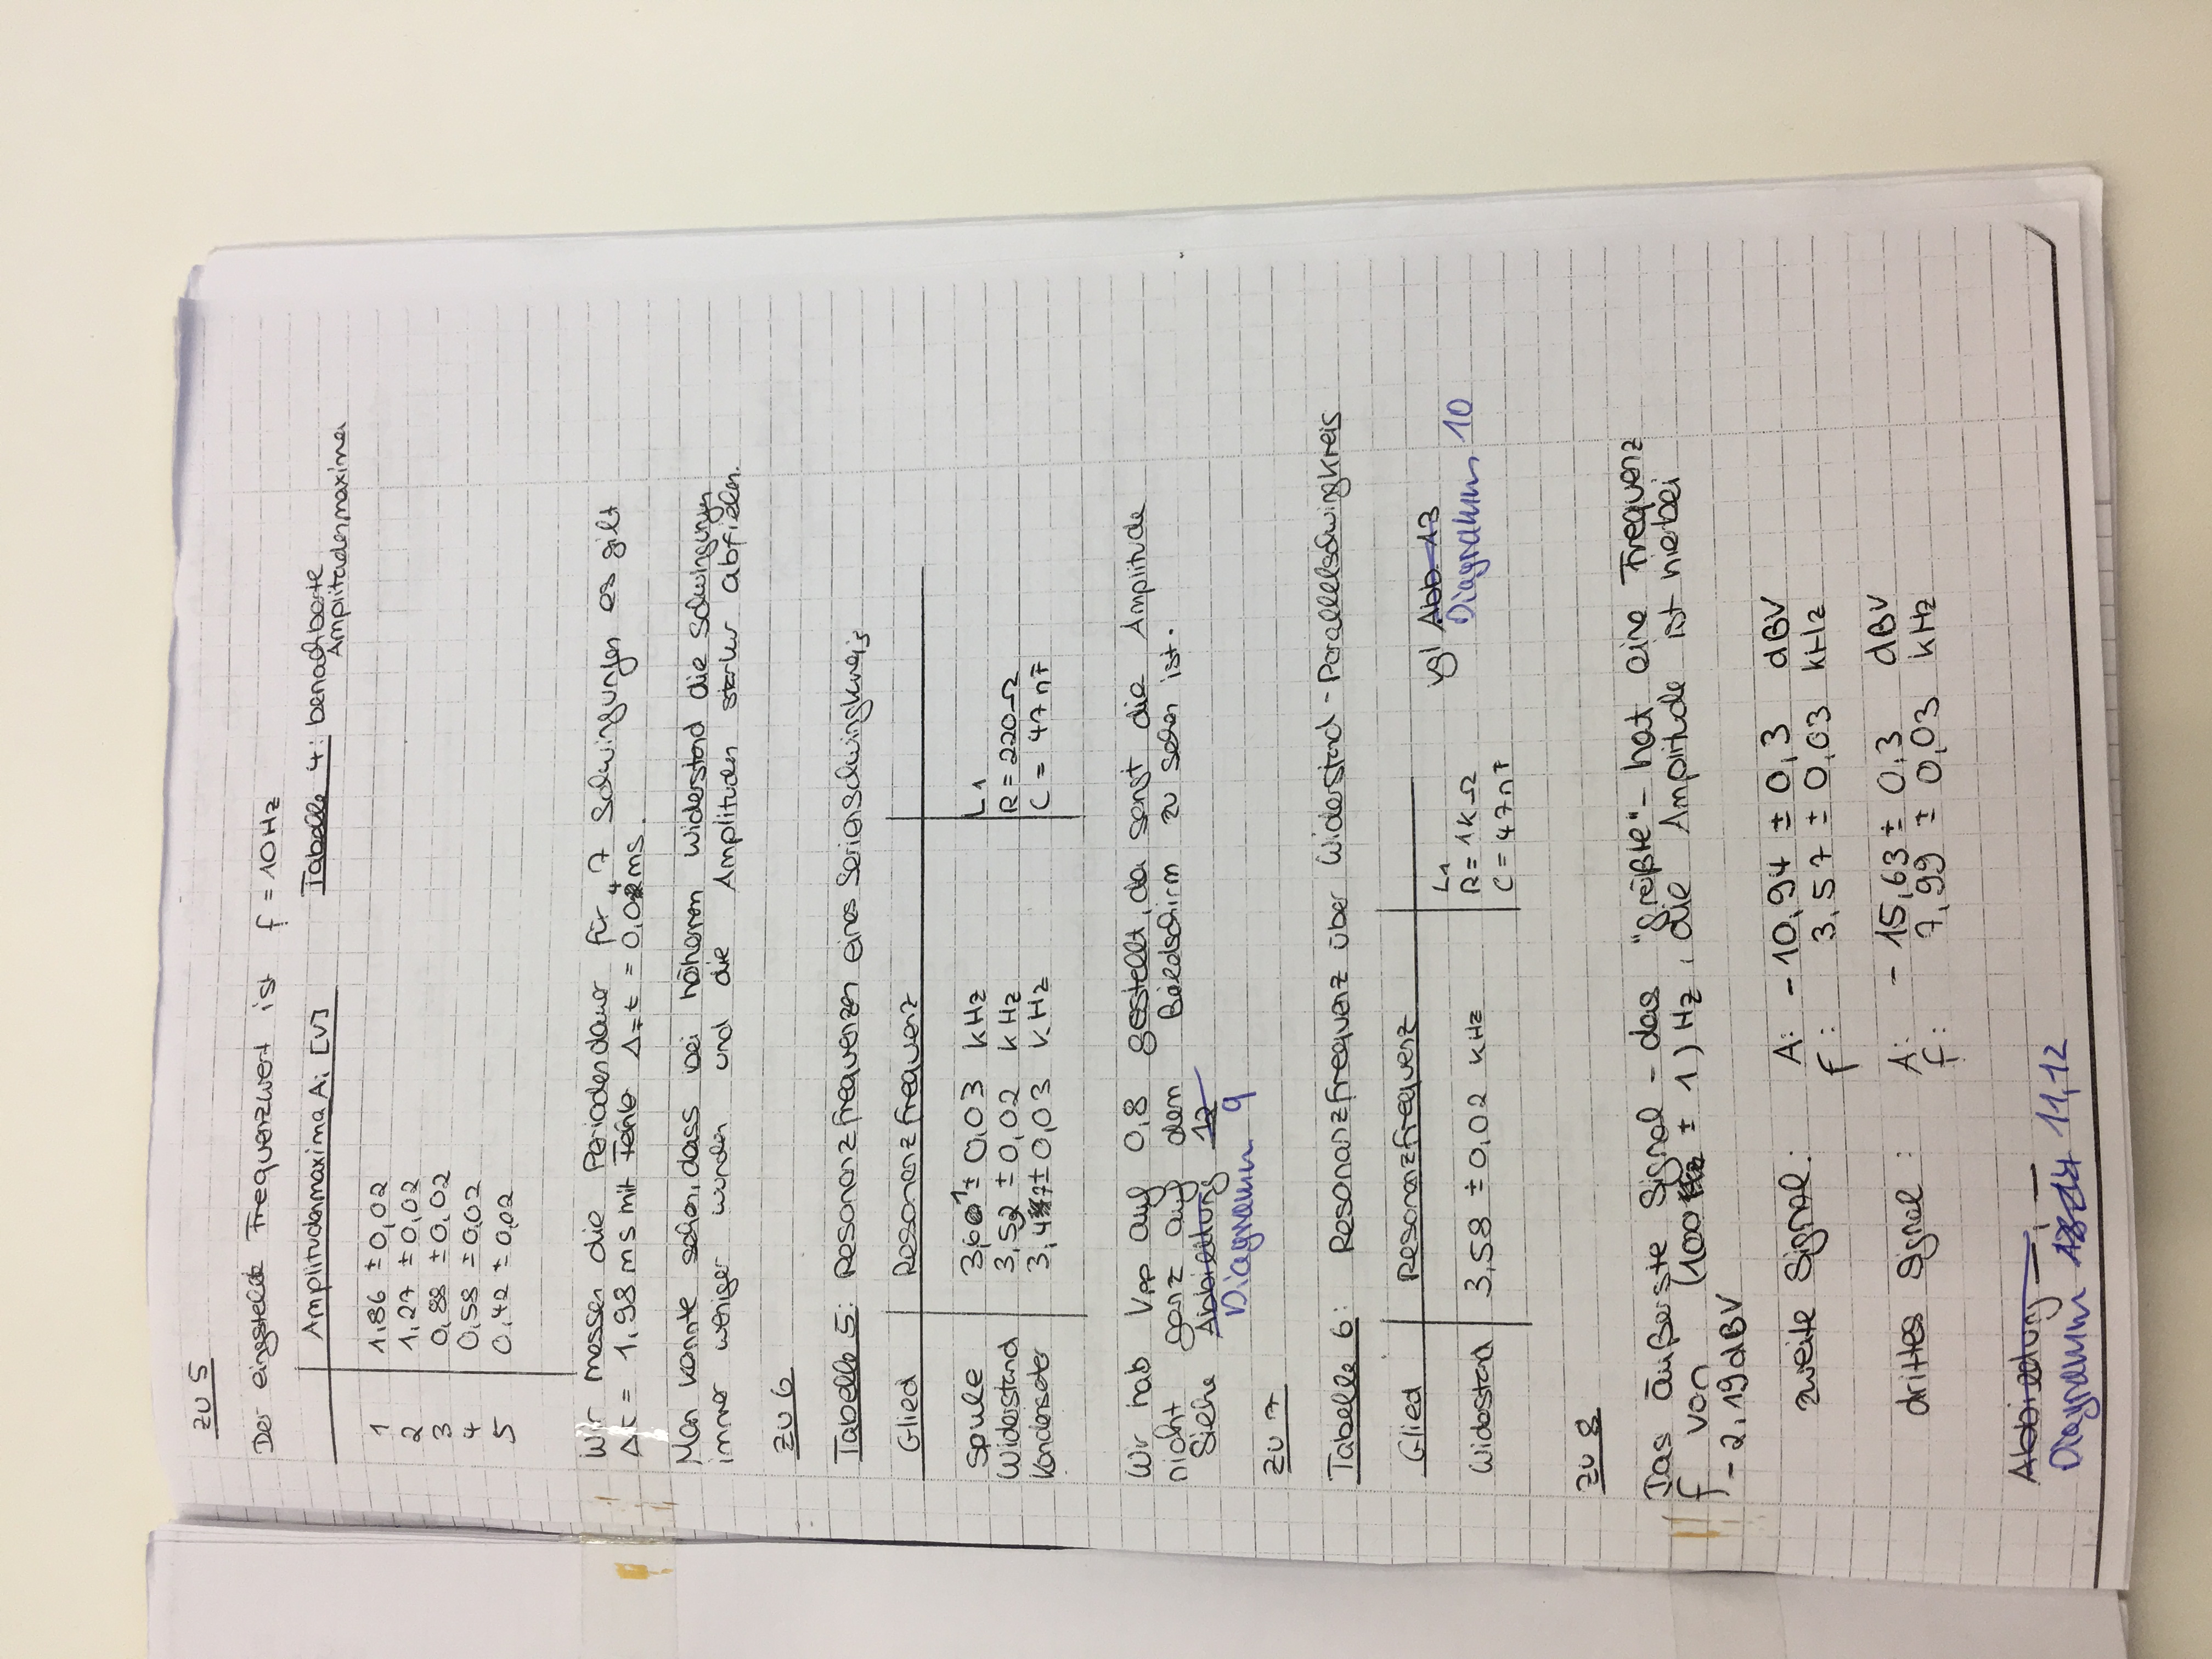 zu 5
Der eingestellte Frequenzwert ist f = 10Hz
Amplitudenmaxima Ai [V]
Tabelle 4: benachbarte Amplitudenmaxima
1 1,86 ±0,02
2 1,27 ±0,02
3 0,88 ±0,02
4 0,58 ±0,02
5 0,42 ±0,02
Wir messen die Periodendauer für 7 Schwingungen es gilt
Δt = 1,98 ms mit Fehler Δ t = 0,04 ms.
Man konnte sehen, dass bei höherem Widerstand die Schwingungen
immer weniger wurden und die Amplituden stärker abfielen.
zu 6
Tabelle 5: Resonanzfrequenzen eines Serienschwingkreis
Glied Resonanzfrequenz
Spule 3,61 ± 0,03 kHz L1
Widerstand 3,52 ± 0,02 kHz R = 220Ω
Kondensator 3,47 ± 0,03 kHz C = 47nF
Wir hab Vpp auf 0,8 gestellt, da sonst die Amplitude
nicht ganz auf dem Bildschirm zu sehen ist.
Siehe Abbildung 12
Diagramm 9
zu 7
Tabelle 6: Resonanzfrequenz über Widerstand - Parallelschwingkreis
Glied Resonanzfrequenz
L1
vgl Abb. 13
Widerstand 3,58 ± 0,02 kHz R = 1kΩ
Diagramm 10
C = 47nF
zu 8
Das äußerste Signal - das "größte" - hat eine Frequenz
f von (100 ± 1) Hz, die Amplitude ist hierbei
-2,19dBV
zweite Signal: A: -10,94 ± 0,3 dBV
f: 3,57 ± 0,03 kHz
drittes Signal: A: -15,63 ± 0,3 dBV
f: 7,99 ± 0,03 kHz
Abbildung —, —
Diagramm 11,12